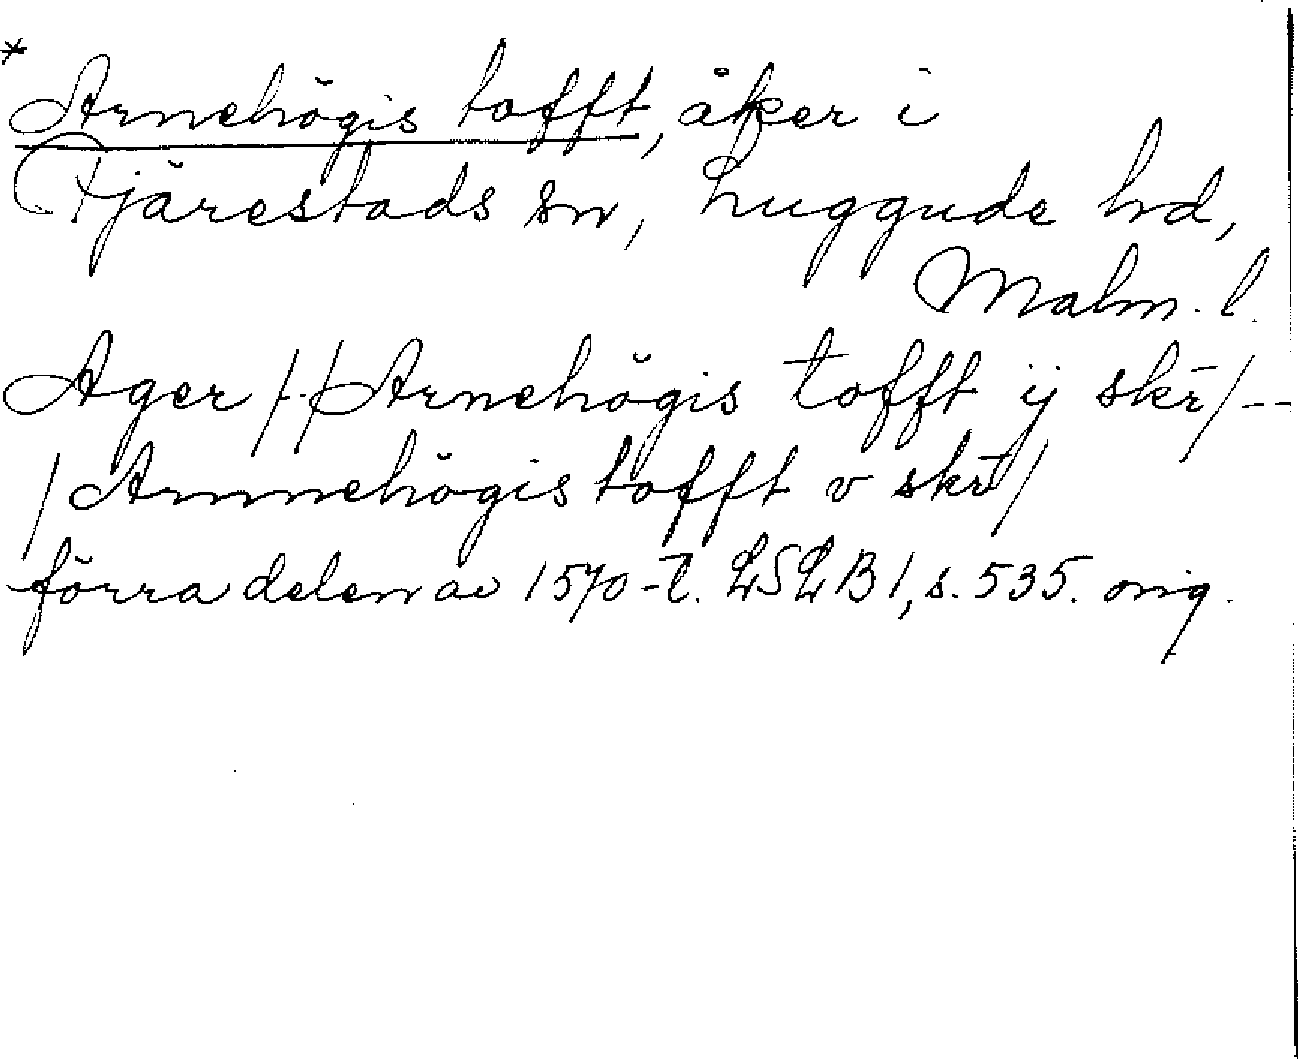 * Arnehögis tofft, åker i
Fjärestads sn, Luggude hd,
Malm. l.
Ager /../ Arnehögis tofft ij skr̄/--
/ Arnnehögis tofft v skr̄/
förra delen av 1570-t. LSLB 1, s. 535. orig.